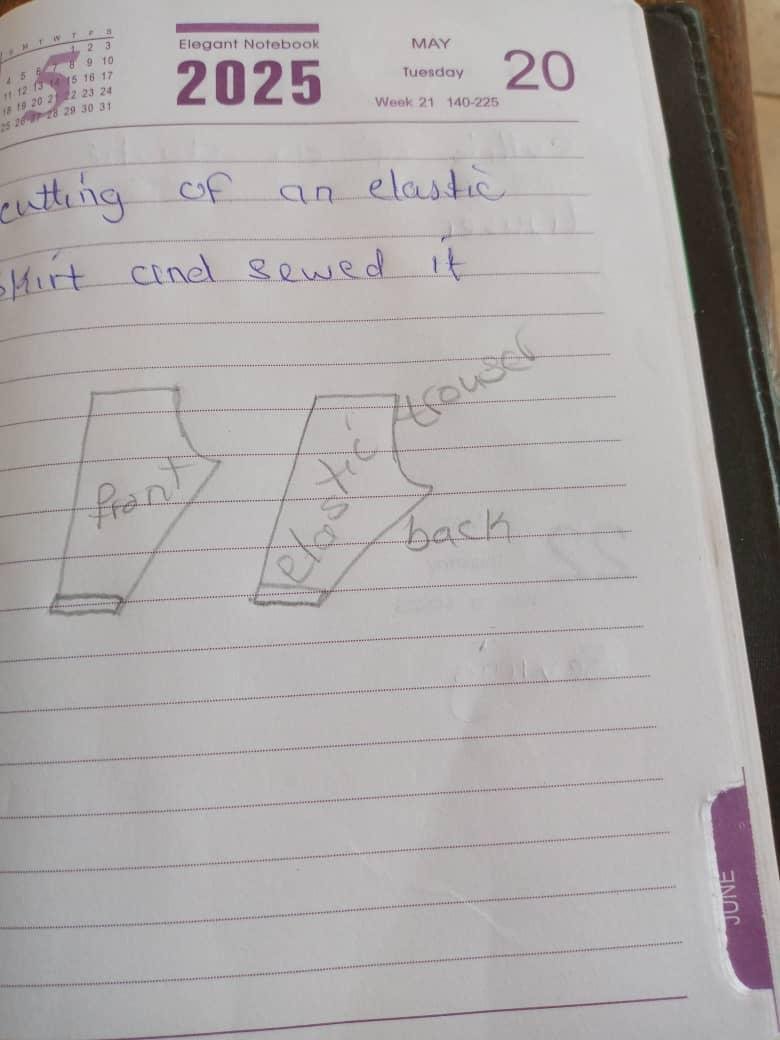 S M T W T F S
1 2 3
4 5 6 7 8 9 10
11 12 13 14 15 16 17
18 19 20 21 22 23 24
25 26 27 28 29 30 31
5
Elegant Notebook
2025
MAY
Tuesday
Week 21 140-225
20
cutting of an elastic
skirt and sewed it
front
elastic trouser
back
JUNE